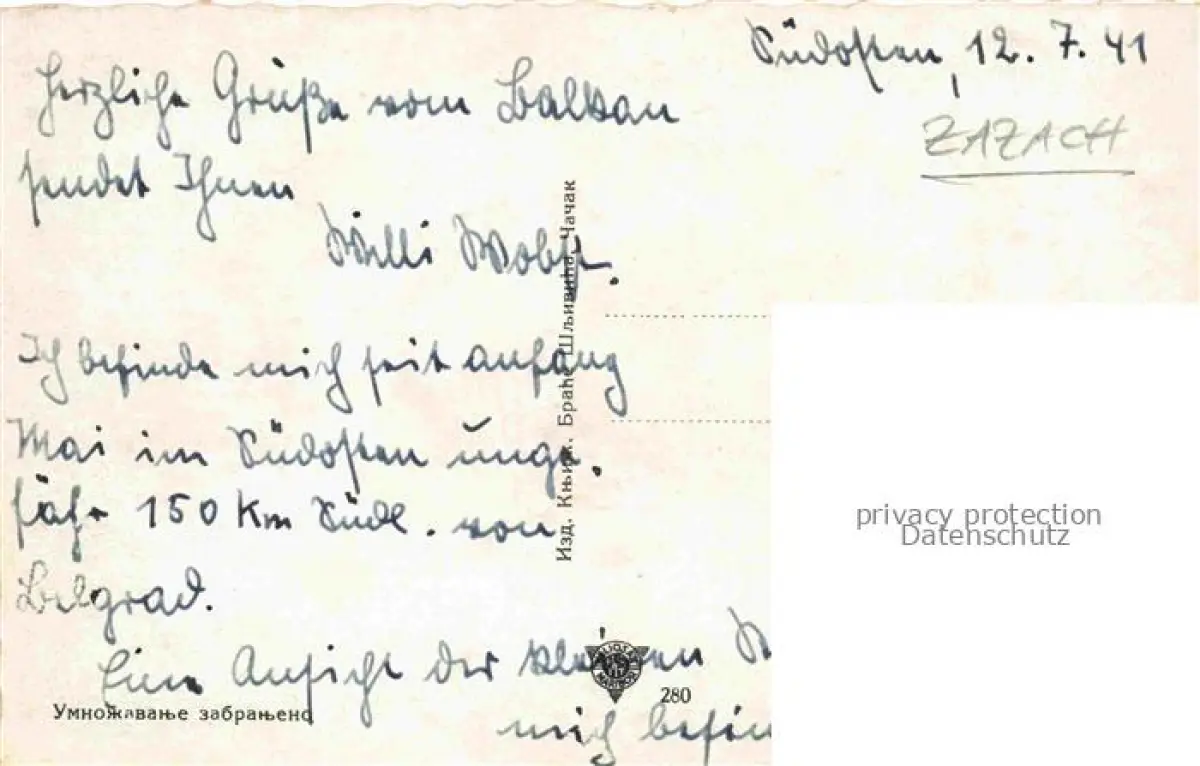 Südosten, 12. 7. 41
ZAZACH
Herzliche Grüße vom Balkan
sendet Ihnen
Willi Wobst.
Ich befinde mich seit anfang
Mai im Südosten unge.
fähr 150 Km Südl. von
Belgrad.
Eine Ansicht der kleinen
mich befin
Умножавање забрањено
Изд. Књиж. Браће Шљивића, Чачак
280
privacy protection
Datenschutz